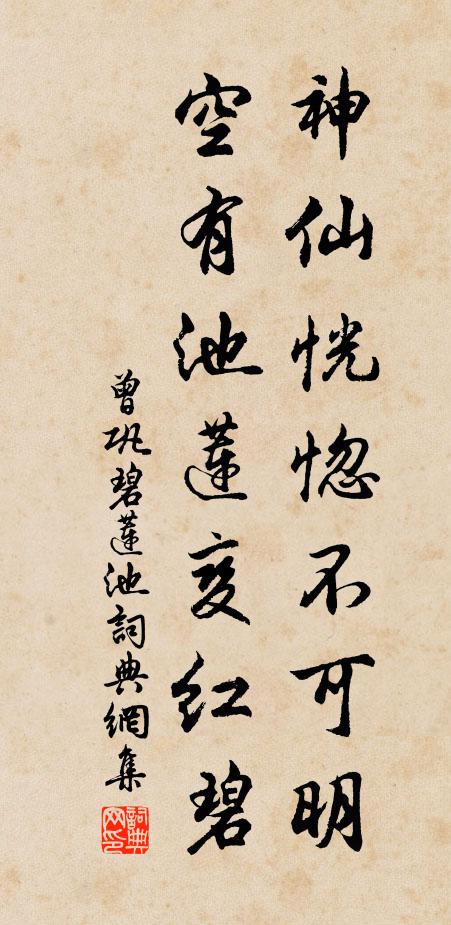 神仙恍惚不可明
空有池蓮变红碧
曾巩碧蓮池詞典網集
詞典网印